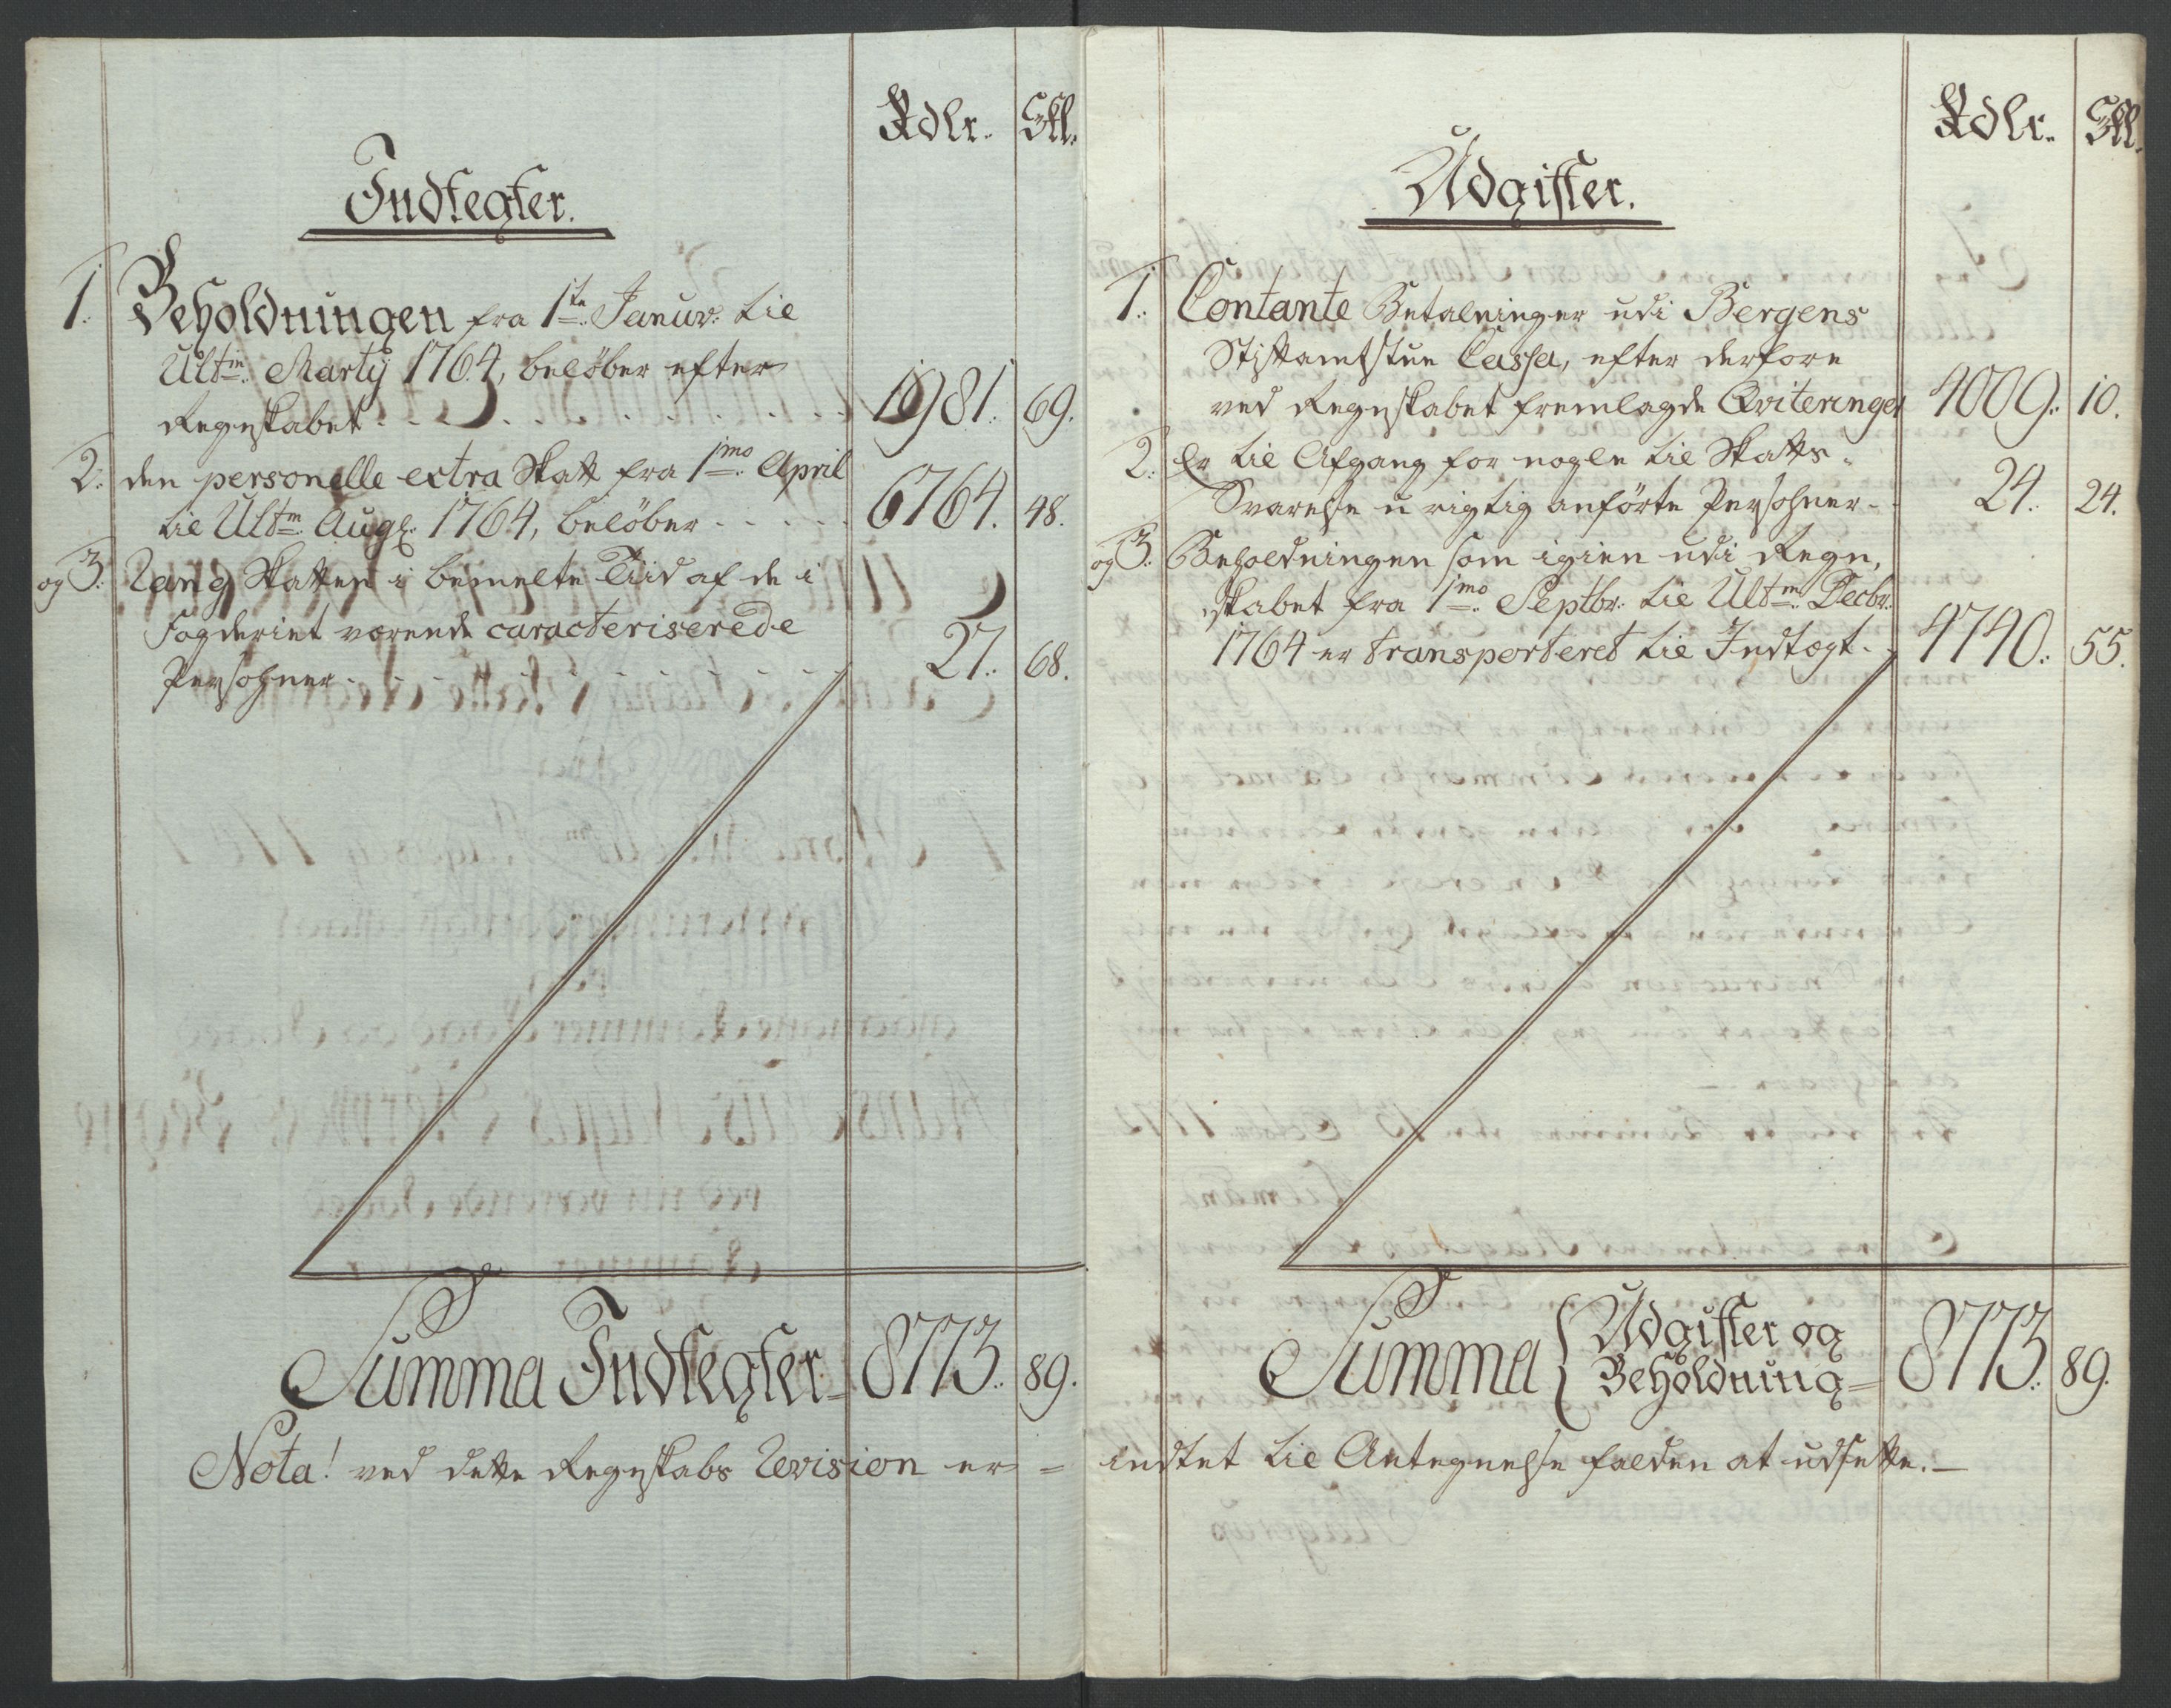 Rdlr. Skl.
Indtegter.
1. Beholdningen fra 1te Januv: til
Ultm Martÿ 1764, belöber efter
Regnskabet 1981. 69.
2. den personelle extra Skatt fra 1mo April
til Ultm Augl. 1764, belöber 6764. 48.
og 3. Rang Skatten i bemelte Tiid af de i
Fogderiet værende caracteriserede
Persohner 27. 68.
Summa Indtegter 8773. 89.
Nota! ved dette Regnskabs Revision er =
Rdlr. Skl.
Udgifter.
1. Contante Betalninger udi Bergens
Stiftamtstue Cassa, efter derfore
ved Regnskabet fremlagde Qviteringer 4009. 10.
2. Er til Afgang for nogle til Skatts-
Svarelse u rigtig anförte Persohner 24. 24.
og 3. Beholdningen som igien udi Regn,
skabet fra 1mo Septbr: til Ultm Decbr:
1764 er transporteret til Indtægt 4740. 55.
Summa { Udgifter og
Beholdning = 8773. 89.
indtet til Antegnelse falden at udsette.